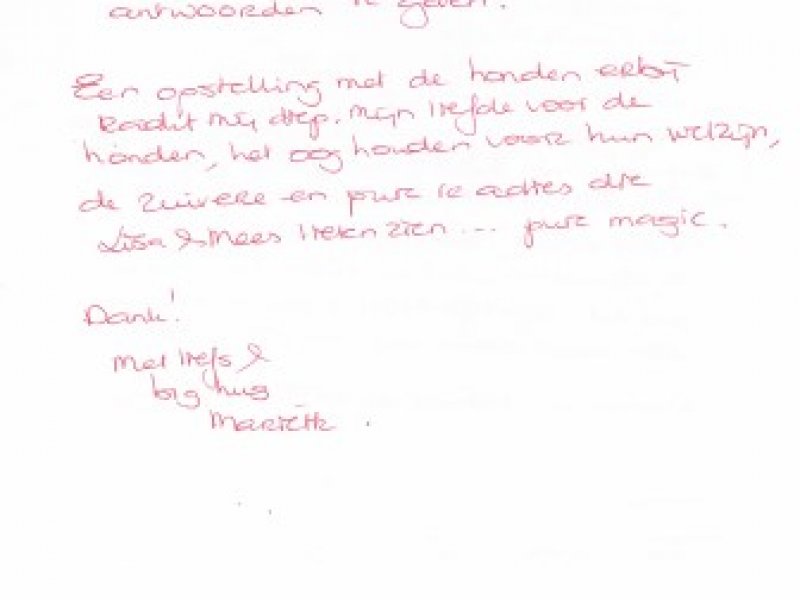 antwoorden te geven.
Een opstelling met de honden erbij
raakt mij diep. Mijn liefde voor de
honden, het oog houden voor hun welzijn,
de zuivere en pure reacties die
Lisa & Mees lieten zien... pure magic.
Dank!
Met liefs &
big hug
Mariëtte